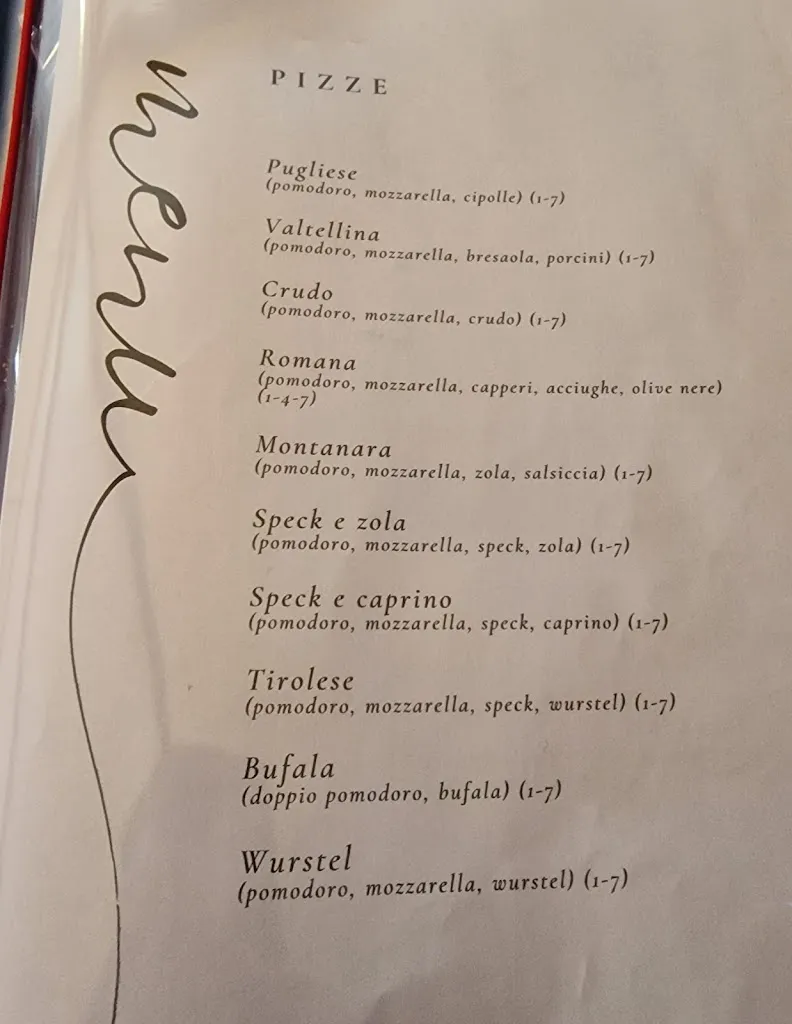 menu
PIZZE
Pugliese
(pomodoro, mozzarella, cipolle) (1-7)
Valtellina
(pomodoro, mozzarella, bresaola, porcini) (1-7)
Crudo
(pomodoro, mozzarella, crudo) (1-7)
Romana
(pomodoro, mozzarella, capperi, acciughe, olive nere)
(1-4-7)
Montanara
(pomodoro, mozzarella, zola, salsiccia) (1-7)
Speck e zola
(pomodoro, mozzarella, speck, zola) (1-7)
Speck e caprino
(pomodoro, mozzarella, speck, caprino) (1-7)
Tirolese
(pomodoro, mozzarella, speck, wurstel) (1-7)
Bufala
(doppio pomodoro, bufala) (1-7)
Wurstel
(pomodoro, mozzarella, wurstel) (1-7)